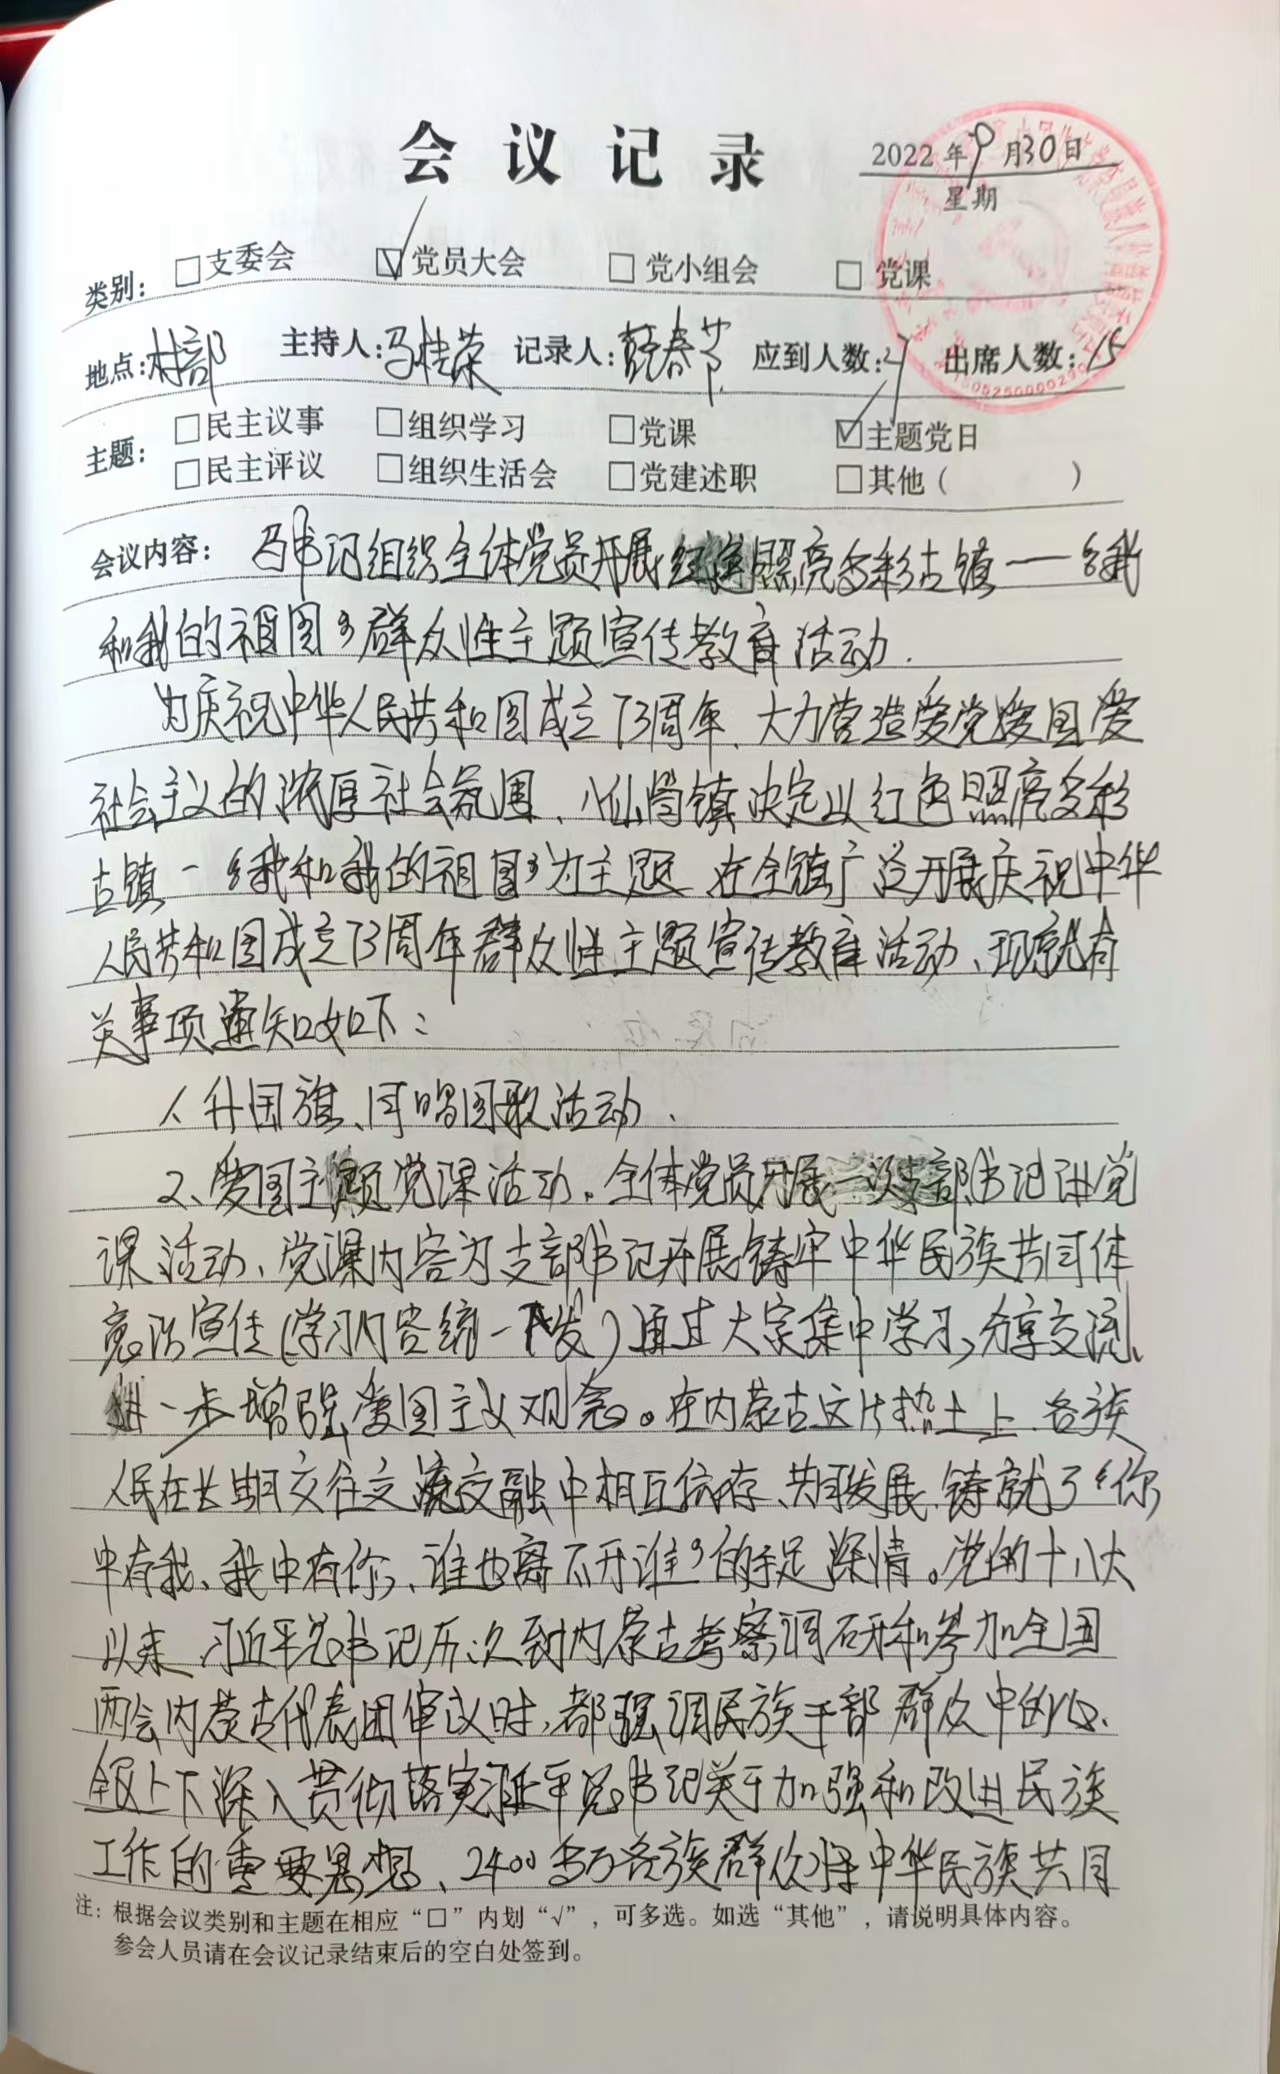 会议记录
2022年9月30日
星期
类别: □支委会 ☑党员大会 □党小组会 □党课
地点:村部 主持人:马桂荣 记录人:春节 应到人数: 出席人数:15
主题: □民主议事 □组织学习 □党课 ☑主题党日
□民主评议 □组织生活会 □党建述职 □其他( )
会议内容: 马书记组织全体党员开展红色照亮多彩古镇——“我
和我的祖国”群众性主题宣传教育活动.
为庆祝中华人民共和国成立73周年、大力营造爱党爱国爱
社会主义的浓厚社会氛围、八仙筒镇决定以红色照亮多彩
古镇—“我和我的祖国”为主题 在全镇广泛开展庆祝中华
人民共和国成立73周年群众性主题宣传教育活动、现就有
关事项通知如下:
1、升国旗、同唱国歌活动.
2、爱国主题党课活动。全体党员开展一次支部书记讲党
课活动、党课内容为支部书记开展铸牢中华民族共同体
意识宣传(学习内容统一下发)通过大家集中学习,分享交流、
进一步增强爱国主义观念。在内蒙古这片热土上、各族
人民在长期交往交流交融中相互依存、共同发展、铸就了“你
中有我、我中有你、谁也离不开谁”的手足深情。党的十八大
以来 习近平总书记历次到内蒙古考察调研和参加全国
两会内蒙古代表团审议时,都强调民族干部群众中的心、
全区上下深入贯彻落实习近平总书记关于加强和改进民族
工作的重要思想、2400多万各族群众将中华民族共同
注: 根据会议类别和主题在相应“□”内划“√”,可多选。如选“其他”,请说明具体内容。
参会人员请在会议记录结束后的空白处签到。